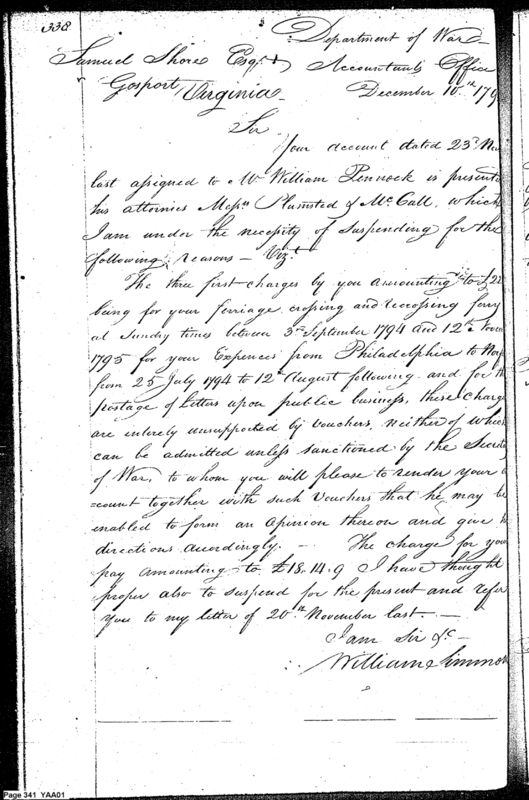 338
Department of War
Samuel Shore Esqr. Accountants Office
Gosport, Virginia December 10th 179
Sir
Your account dated 23d Nov
last assigned to Mr William Pennock is presente
his attornies Messrs Plumsted & Mc.Call, which
I am under the necessity of suspending for the
following reasons — Vizt
The three first charges by you amounting to £22
being for your ferriage crossing and recrossing ferry
at Sunday times between 3rd September 1794 and 12th Novem
1795 for your Expences from Philadelphia to Nor
from 25 July 1794 to 12th August following and for th
postage of Letters upon public business, these charg
are entirely unsupported by vouchers, neither of which
can be admitted unless sanctioned by the Secret
of War, to whom you will please to render your a
=count together with such Vouchers that he may be
enabled to form an Opinion thereon and give h
directions accordingly. — The charge for your
pay amounting to £18.14.9 I have thought
proper also to suspend for the present and refer
you to my letter of 20th November last. —
I am Sir &c —
William Simmon
Page 341 YAA01